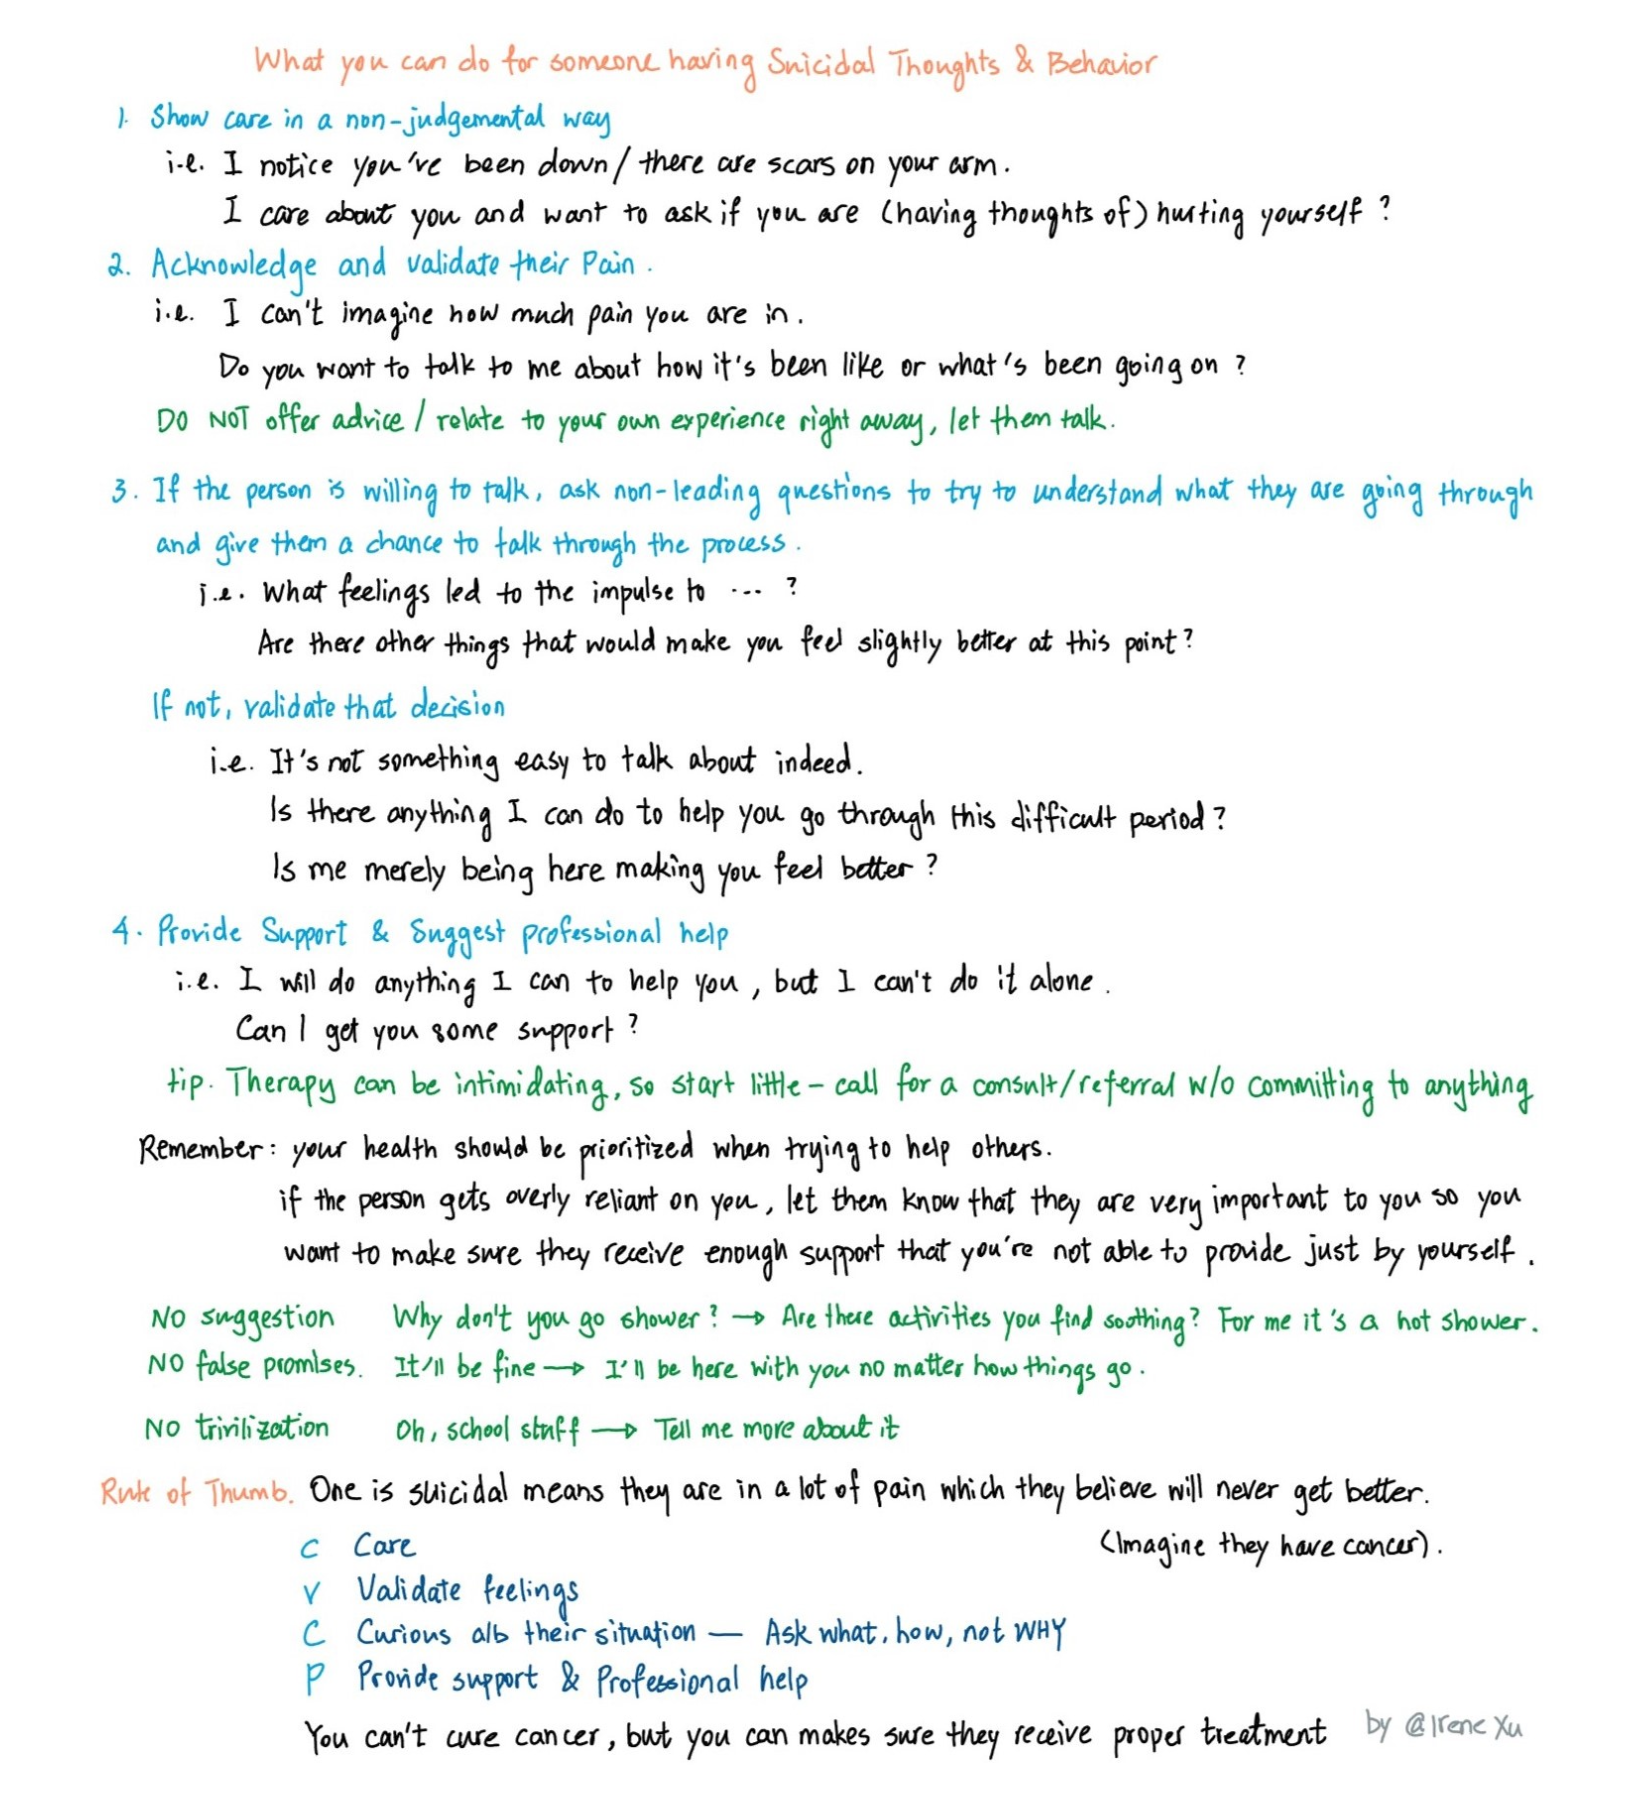 What you can do for someone having Suicidal Thoughts & Behavior
1. Show care in a non-judgemental way
i.e. I notice you've been down / there are scars on your arm.
I care about you and want to ask if you are (having thoughts of) hurting yourself ?
2. Acknowledge and validate their Pain .
i.e. I can't imagine how much pain you are in .
Do you want to talk to me about how it's been like or what's been going on ?
DO NOT offer advice / relate to your own experience right away, let them talk.
3. If the person is willing to talk, ask non-leading questions to try to understand what they are going through
and give them a chance to talk through the process .
i.e. What feelings led to the impulse to ... ?
Are there other things that would make you feel slightly better at this point?
If not, validate that decision
i.e. It's not something easy to talk about indeed.
Is there anything I can do to help you go through this difficult period ?
Is me merely being here making you feel better ?
4. Provide Support & Suggest professional help
i.e. I will do anything I can to help you , but I can't do it alone .
Can I get you some support ?
tip. Therapy can be intimidating, so start little - call for a consult/referral w/o committing to anything
Remember: your health should be prioritized when trying to help others.
if the person gets overly reliant on you, let them know that they are very important to you so you
want to make sure they receive enough support that you're not able to provide just by yourself .
NO suggestion Why don't you go shower ? → Are there activities you find soothing? For me it's a hot shower.
NO false promises. It'll be fine → I'll be here with you no matter how things go .
NO trivilization Oh, school stuff → Tell me more about it
Rule of Thumb. One is suicidal means they are in a lot of pain which they believe will never get better.
(Imagine they have cancer) .
C Care
V Validate feelings
C Curious a/b their situation — Ask what, how, not WHY
P Provide support & Professional help
You can't cure cancer, but you can makes sure they receive proper treatment by @Irene Xu